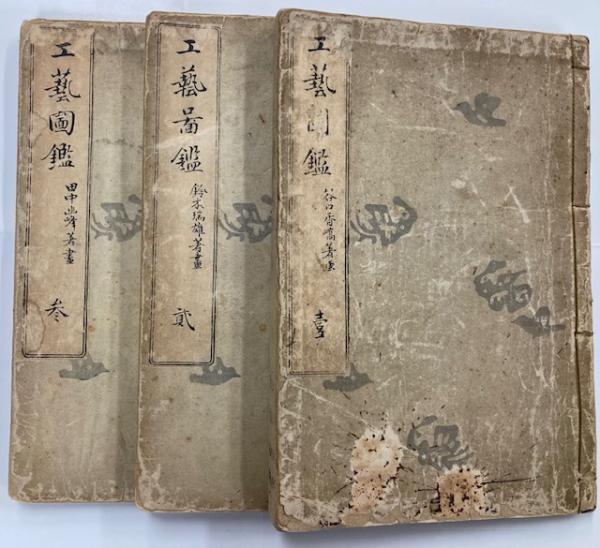 工藝圖鑑
谷口香嶠著畫
壹
工藝啚鑑
鈴木瑞雄著畫
貳
工藝圖鑑
著畫
叁